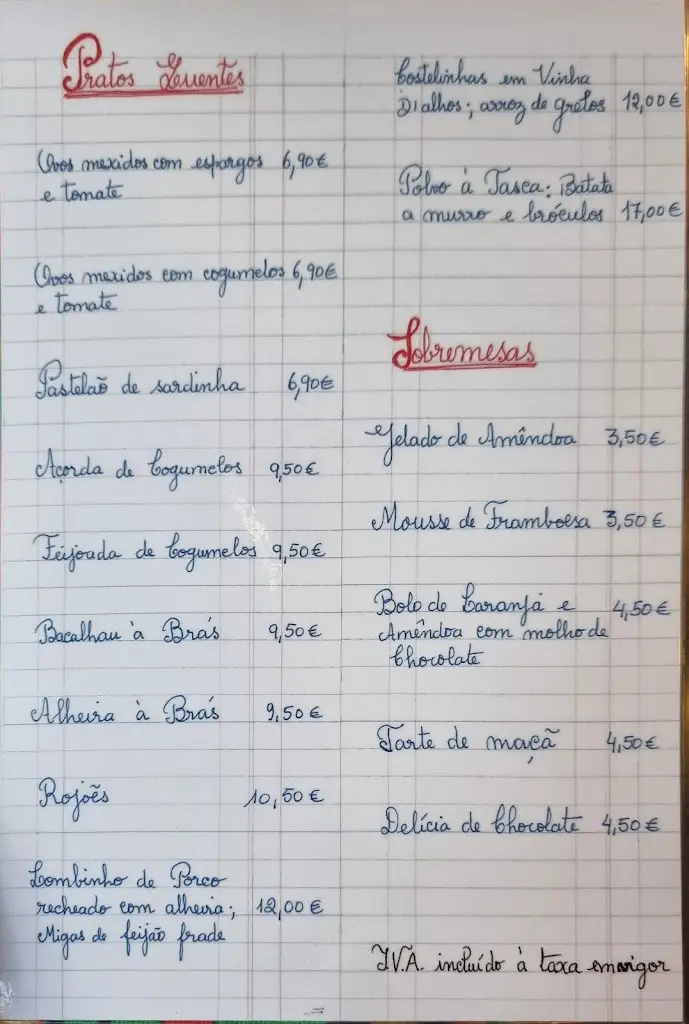 Pratos Quentes
Ovos mexidos com espargos 6,90€
e tomate
Ovos mexidos com cogumelos 6,90€
e tomate
Pastelão de sardinha 6,90€
Açorda de Cogumelos 9,50€
Feijoada de Cogumelos 9,50€
Bacalhau à Brás 9,50€
Alheira à Brás 9,50€
Rojões 10,50€
Lombinho de Porco
recheado com alheira; 12,00€
Migas de feijão frade
Costelinhas em Vinha
D'alhos; arroz de grelos 12,00€
Polvo à Tasca: Batata
a murro e bróculos 17,00€
Sobremesas
Gelado de Amêndoa 3,50€
Mousse de Framboesa 3,50€
Bolo de Laranja e 4,50€
Amêndoa com molho de
Chocolate
Tarte de maçã 4,50€
Delícia de Chocolate 4,50€
I.V.A. incluído à taxa em vigor